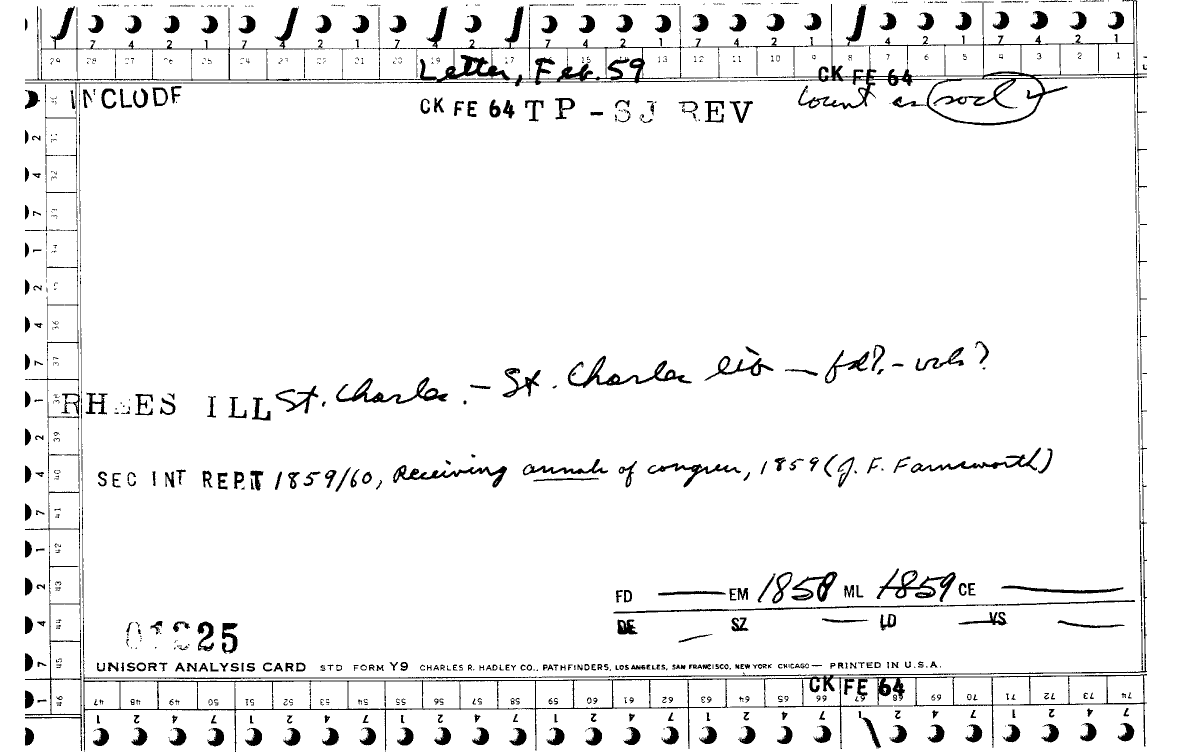 7 4 2 1 7 4 2 1 7 4 2 1 7 4 2 1 7 4 2 1 7 4 2 1 7 4 2 1
29 28 27 26 25 24 23 22 21 20 19 18 17 16 15 14 13 12 11 10 9 8 7 6 5 4 3 2 1
Letter, Feb. 59
CK FE 64
INCLUDE
CK FE 64 TP - SJ REV
Count as socl
RHEES ILL St. Charles. - St. Charles lib - fd?, - vols?
SEC INT REPT 1859/60, Receiving annals of congress, 1859 (J. F. Farnsworth)
FD — EM 1858 ML 1859 CE —
DE — SZ — LD — VS —
01225
UNISORT ANALYSIS CARD STD FORM Y9 CHARLES R. HADLEY CO., PATHFINDERS, LOS ANGELES, SAN FRANCISCO, NEW YORK CHICAGO — PRINTED IN U.S.A.
CK FE 64
47 48 49 50 51 52 53 54 55 56 57 58 59 60 61 62 63 64 65 66 67 68 69 70 71 72 73 74
1 2 4 7 1 2 4 7 1 2 4 7 1 2 4 7 1 2 4 7 1 2 4 7 1 2 4 7